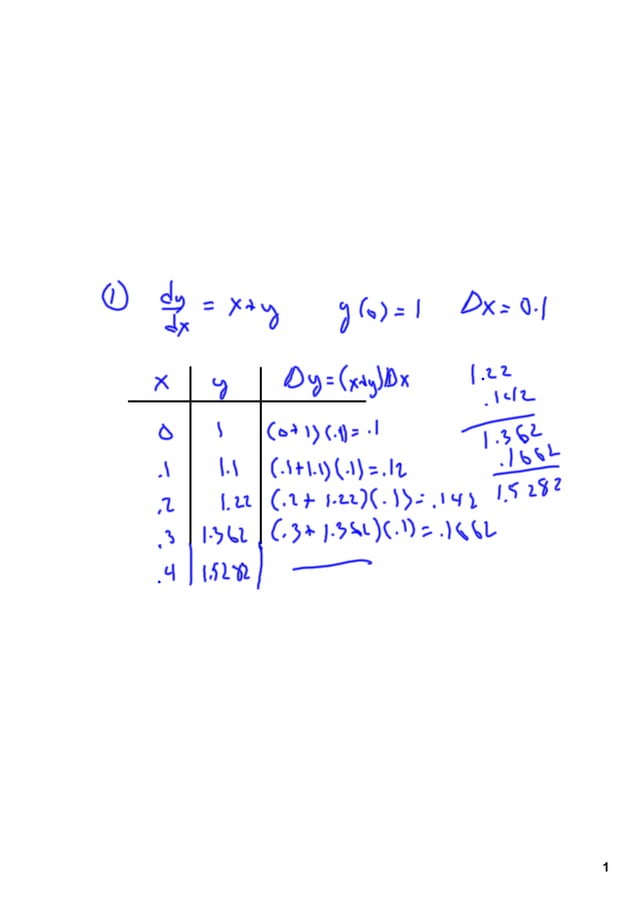 ① dy/dx = x+y y(0)=1 Δx=0.1
x y Δy=(x+y)Δx
0 1 (0+1)(.1)=.1
.1 1.1 (.1+1.1)(.1)=.12
.2 1.22 (.2+1.22)(.1)=.142
.3 1.362 (.3+1.362)(.1)=.1662
.4 1.5282 —
1.22
.142
1.362
.1662
1.5282
1